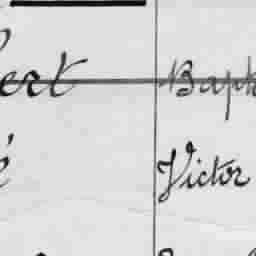 ert Bapt
é Victor